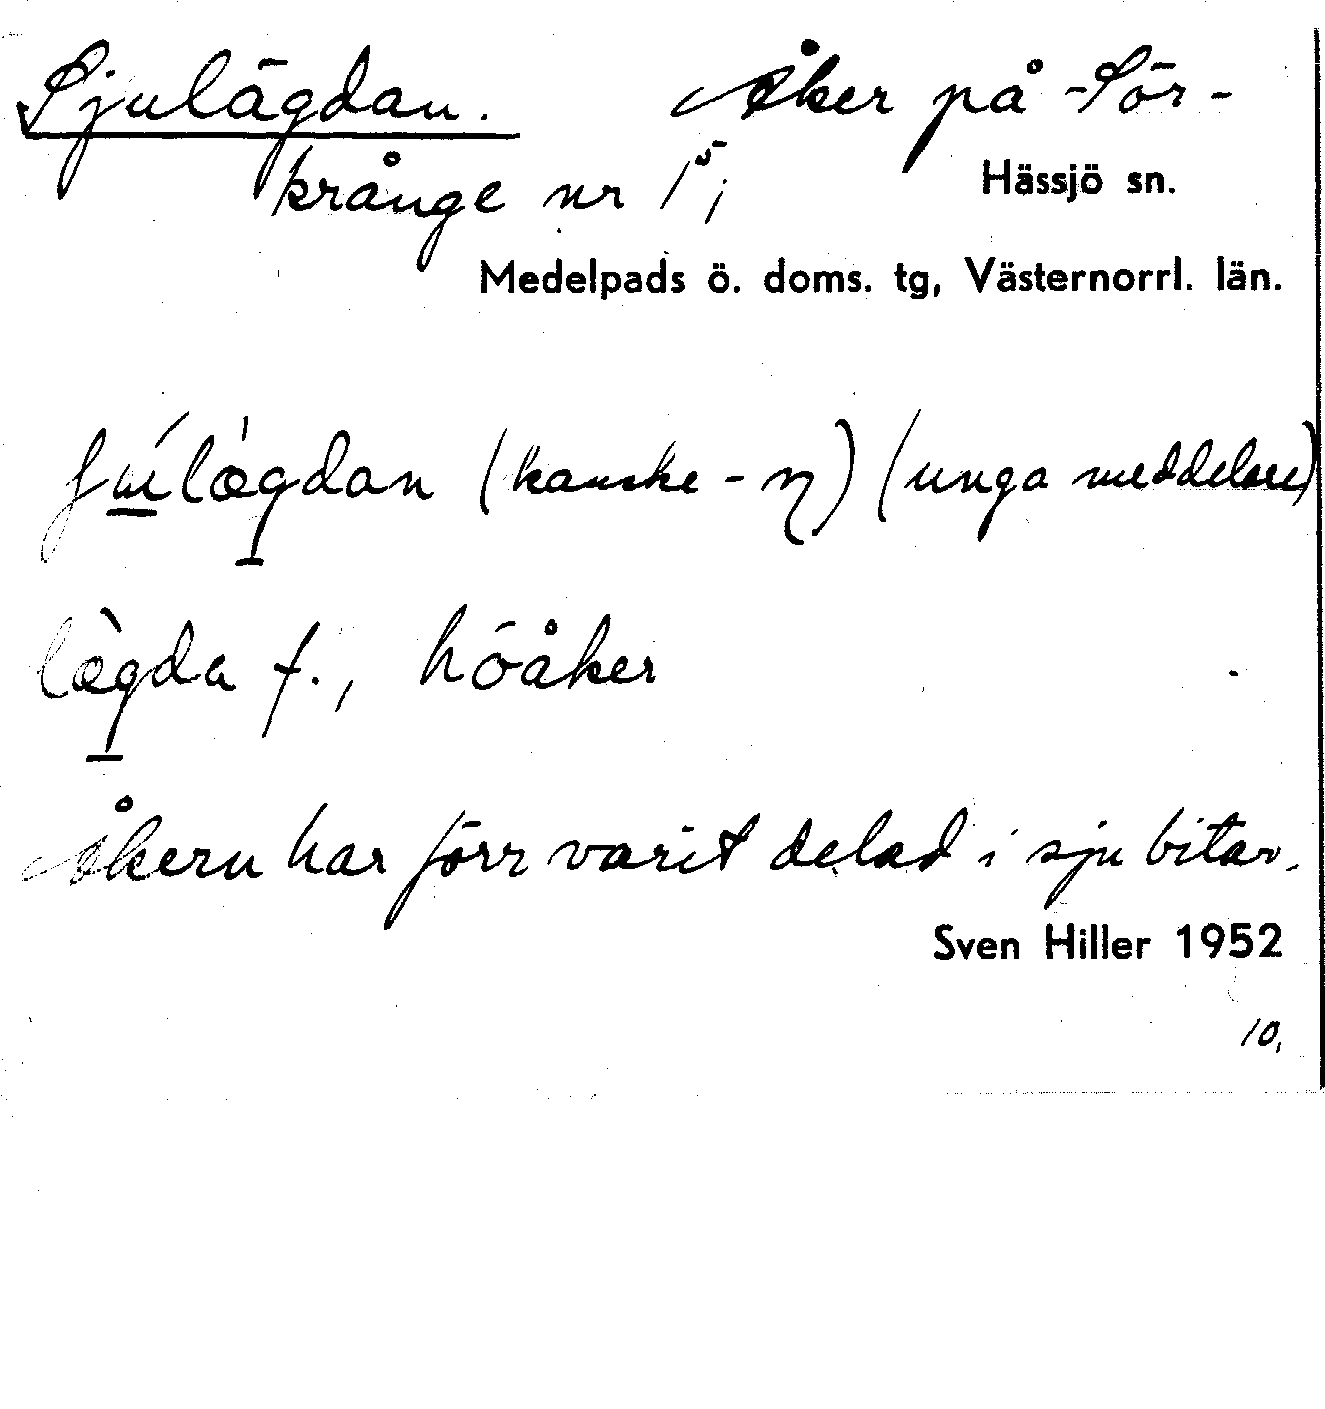 Sjulägdan. Åker på Sör-
Hässjö sn.
krånge nr 1⁵;
Medelpads ö. doms. tg, Västernorrl. län.
ʃú̲læ̀gdan (kanske -ŋ) (unga meddelare)
læ̀gda f., höåker
Åkern har förr varit delad i sju bitar.
Sven Hiller 1952
10,